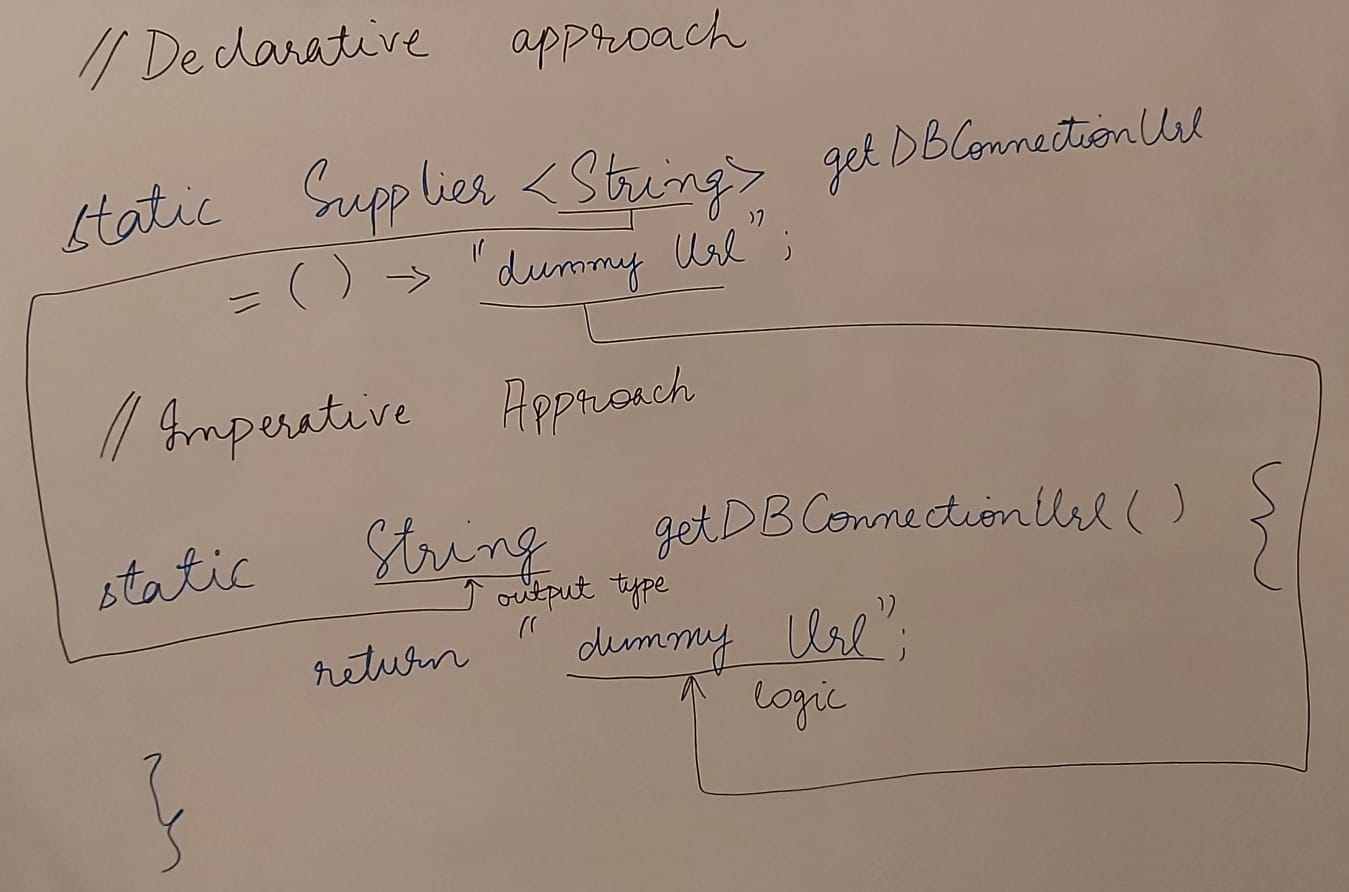 // Declarative approach
static Supplier <String> getDBConnectionUrl
= ( ) → "dummy Url";
// Imperative Approach
static String getDBConnectionUrl ( ) {
output type
return "dummy Url";
logic
}